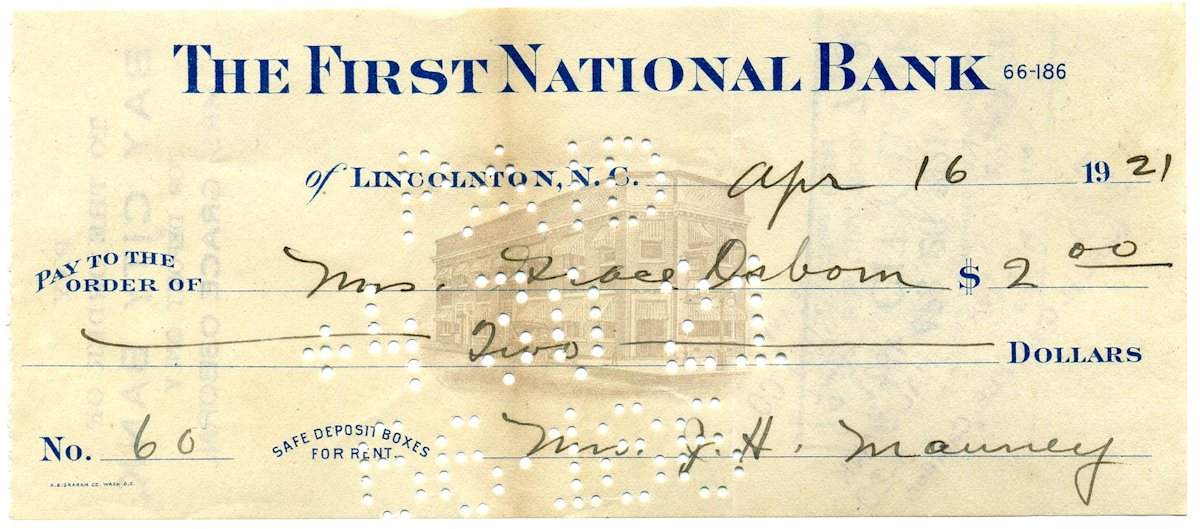 THE FIRST NATIONAL BANK 66-186
of LINCOLNTON, N. C. Apr 16 1921
PAY TO THE ORDER OF Mrs. Grace Osborn $ 2 00
Two DOLLARS
No. 60 SAFE DEPOSIT BOXES FOR RENT. Mrs. J. H. Mauney
A.B. GRAHAM CO. WASH. D.C.
PAID